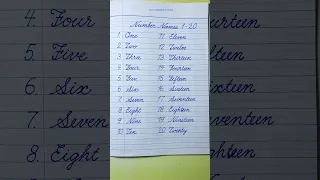 Number Names 1-20.
1. One 11. Eleven
2. Two 12. Twelve
3. Three 13. Thirteen
4. Four 14. Fourteen
5. Five 15. Fifteen
6. Six 16. Sixteen
7. Seven 17. Seventeen
8. Eight 18. Eighteen
9. Nine 19. Nineteen
10. Ten 20. Twenty
4. Four
5. Five
6. Six
7. Seven
8. Eight